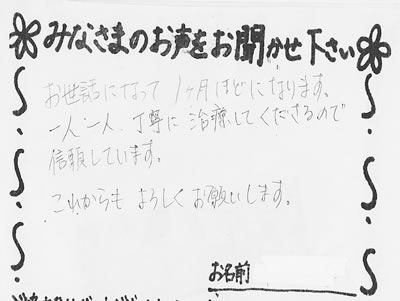 みなさまのお声をお聞かせ下さい
お世話になって 1ヶ月ほどになります。
一人一人、丁寧に 治療してくださるので
信頼しています。
これからも よろしくお願いします。
お名前